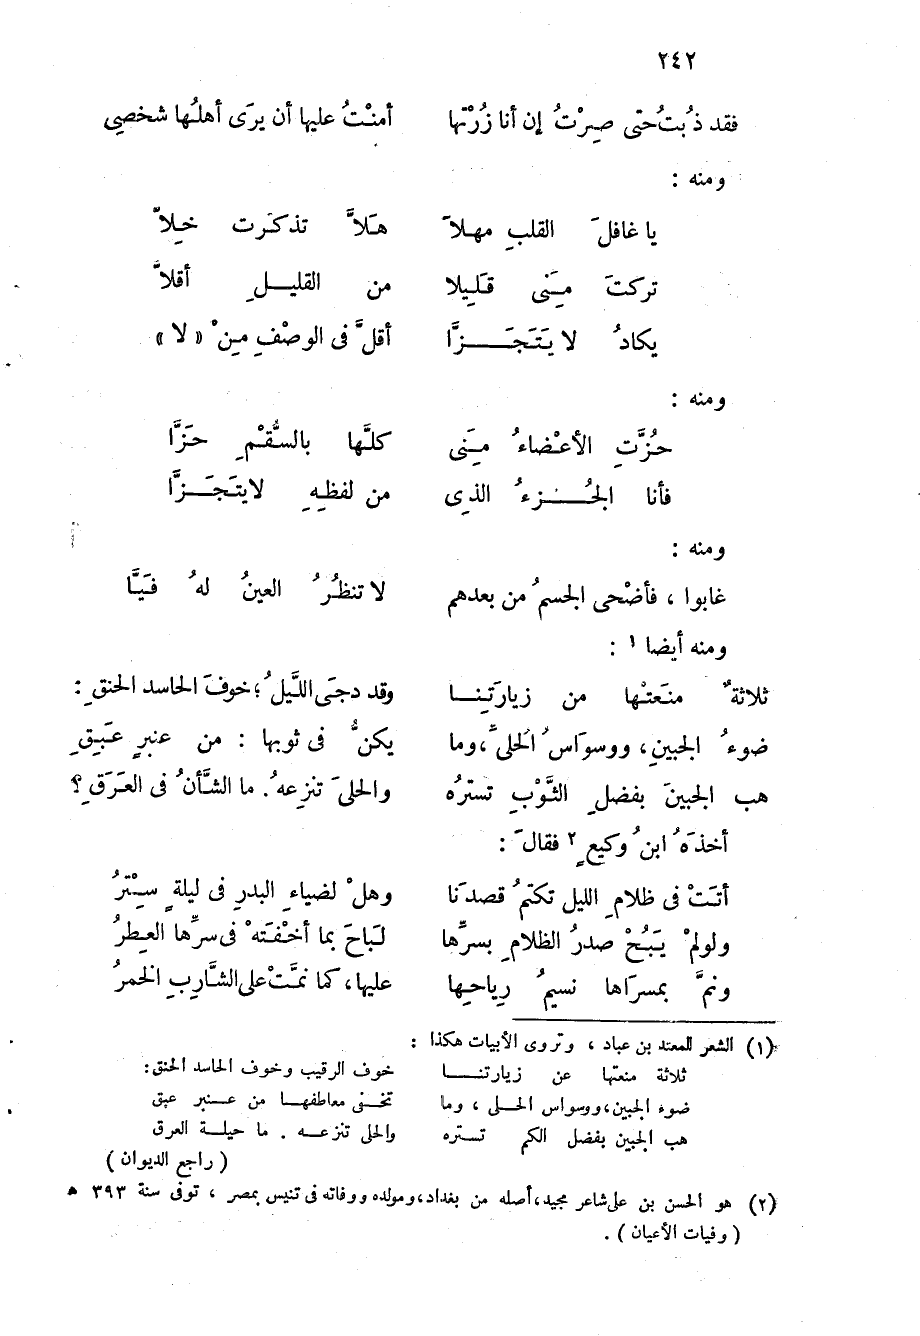 ٢٤٢
فقد ذُبتُ حتى صِرْتُ إن أنا زُرْتها أمنْتُ عليها أن يرَى أهلُها شخصِى
ومنه :
يا غافلَ القلبِ مهلاَ هَلاَّ تذكرَت خِلاَّ
تركتَ مِنَى قَلِيلا من القليلِ أقلاَّ
يكادُ لا يَتَجَزَّا أقلَّ فى الوصْفِ مِنْ « لا »
ومنه :
حُزَّتِ الأعْضاءُ مِنَى كلَّها بالسُّقْمِ حَزَّا
فأنا الجُزءُ الذِى من لفظِهِ لايتَجَزَّا
ومنه :
غابوا ، فأضْحى الجسمُ من بعدهم لا تنظُرُ العينُ لهُ فَيَّا
ومنه أيضا ١ :
ثلاثةٌ منعَتْها من زيارَتِنا وقد دجَى اللَّيلُ ؛ خوفَ الحاسد الحنقِ :
ضوءُ الجبينِ ، ووسوَاسُ الحُلىِّ ، وما يكنُّ فى ثوبها : من عنبرٍ عَبَقِ
هب الجبينَ بفضلِ الثَّوْبِ تسترُه والحلىَ تنزعهُ . ما الشَّأنُ فى العَرَقِ ؟
أخذَهُ ابنُ وكيعٍ ٢ فقالَ :
أتَتْ فى ظلامِ الليل تكتمُ قصدَنا وهلْ لضياءِ البدرِ فى ليلةٍ سِتْرُ
ولولمْ يَبُحْ صدرُ الظلامِ بسرِّها لَباحَ بما أخْفَتهْ فى سرِّها العِطرُ
ونمَّ بمسرَاها نسيمُ رِياحِها عليها ، كما نمَّتْ على الشَّارِبِ الخمرُ
(١) الشعر للمعتمد بن عباد ، وتروى الأبيات هكذا :
ثلاثة منعتها عن زيارتنا خوف الرقيب وخوف الحاسد الحنق :
ضوء الجبين ، ووسواس الحلى ، وما تخفى معاطفها من عنبر عبق
هب الجبين بفضل الكم تستره والحلى تنزعه . ما حيلة العرق
( راجع الديوان )
(٢) هو الحسن بن على شاعر مجيد ، أصله من بغداد ، ومولده ووفاته فى تنيس بمصر ، توفى سنة ٣٩٣ هـ
( وفيات الأعيان ) .